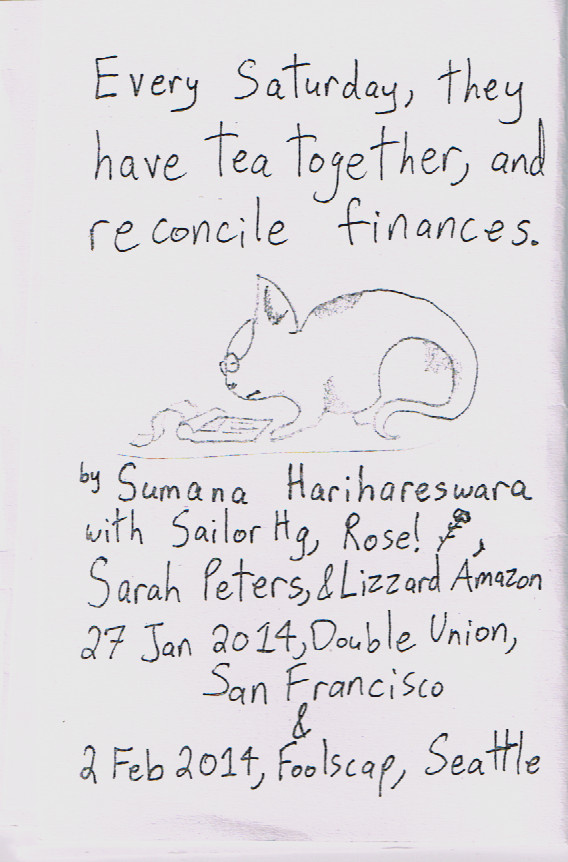 Every Saturday, they
have tea together, and
reconcile finances.
by Sumana Harihareswara
with Sailor Hg, Rose! ,
Sarah Peters, & Lizzard Amazon
27 Jan 2014, Double Union,
San Francisco
&
2 Feb 2014, Foolscap, Seattle